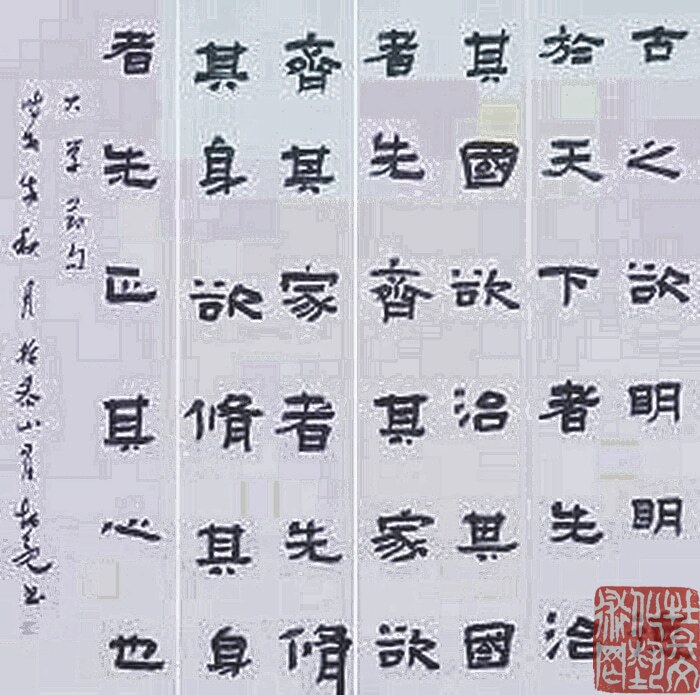 古之欲明明
於天下者先治
其國欲治其國
者先齊其家欲
齊其家者先脩
其身欲脩其身
者先正其心也
大學節句
秋月於泰山